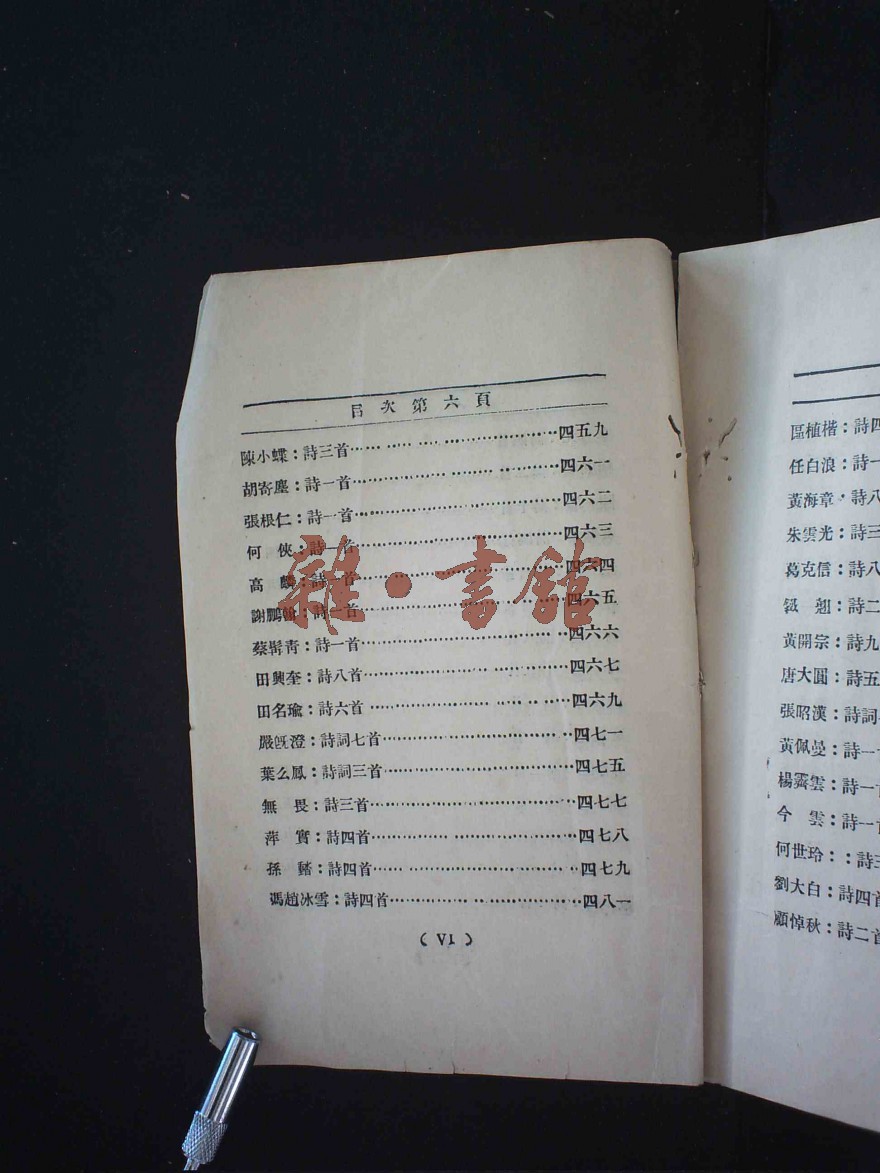 目次第六頁
陳小蝶：詩三首…………………四五九
胡寄塵：詩一首…………………四六一
張根仁：詩一首…………………四六二
何　俠：詩一首…………………四六三
高　麟：詩一首…………………四六四
謝鵬翰：詩一首…………………四六五
蔡髯青：詩一首…………………四六六
田興奎：詩八首…………………四六七
田名瑜：詩六首…………………四六九
嚴旣澄：詩詞七首…………………四七一
葉么鳳：詩詞三首…………………四七五
無　畏：詩三首…………………四七七
萍　實：詩四首…………………四七八
孫　豨：詩四首…………………四七九
馮趙冰雪：詩四首…………………四八一
( VI )
雜·書館
區植楷：詩四
任白浪：詩一
黃海章：詩八
朱雲光：詩三
葛克信：詩八
翹：詩二
黃開宗：詩九
唐大圓：詩五
張昭漢：詩詞
黃佩曼：詩一
楊霽雲：詩一
今　雲：詩一首
何世玲：：詩三
劉大白：詩四首
顧悼秋：詩二首